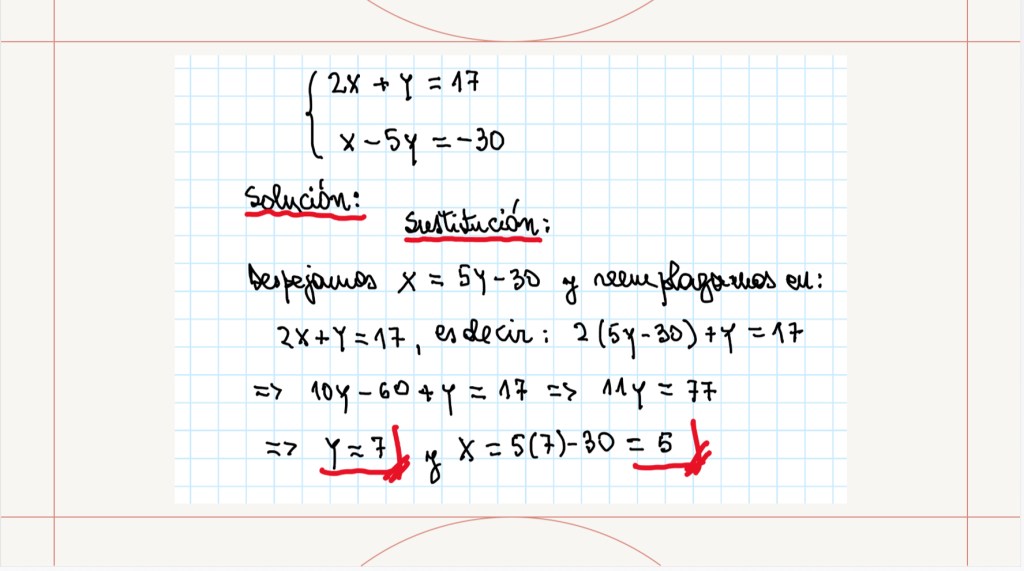 2x + y = 17
x - 5y = -30
Solución:
Sustitución:
Despejamos x = 5y - 30 y reemplazamos en:
2x + y = 17, es decir: 2(5y - 30) + y = 17
=> 10y - 60 + y = 17 => 11y = 77
=> y = 7 y x = 5(7) - 30 = 5